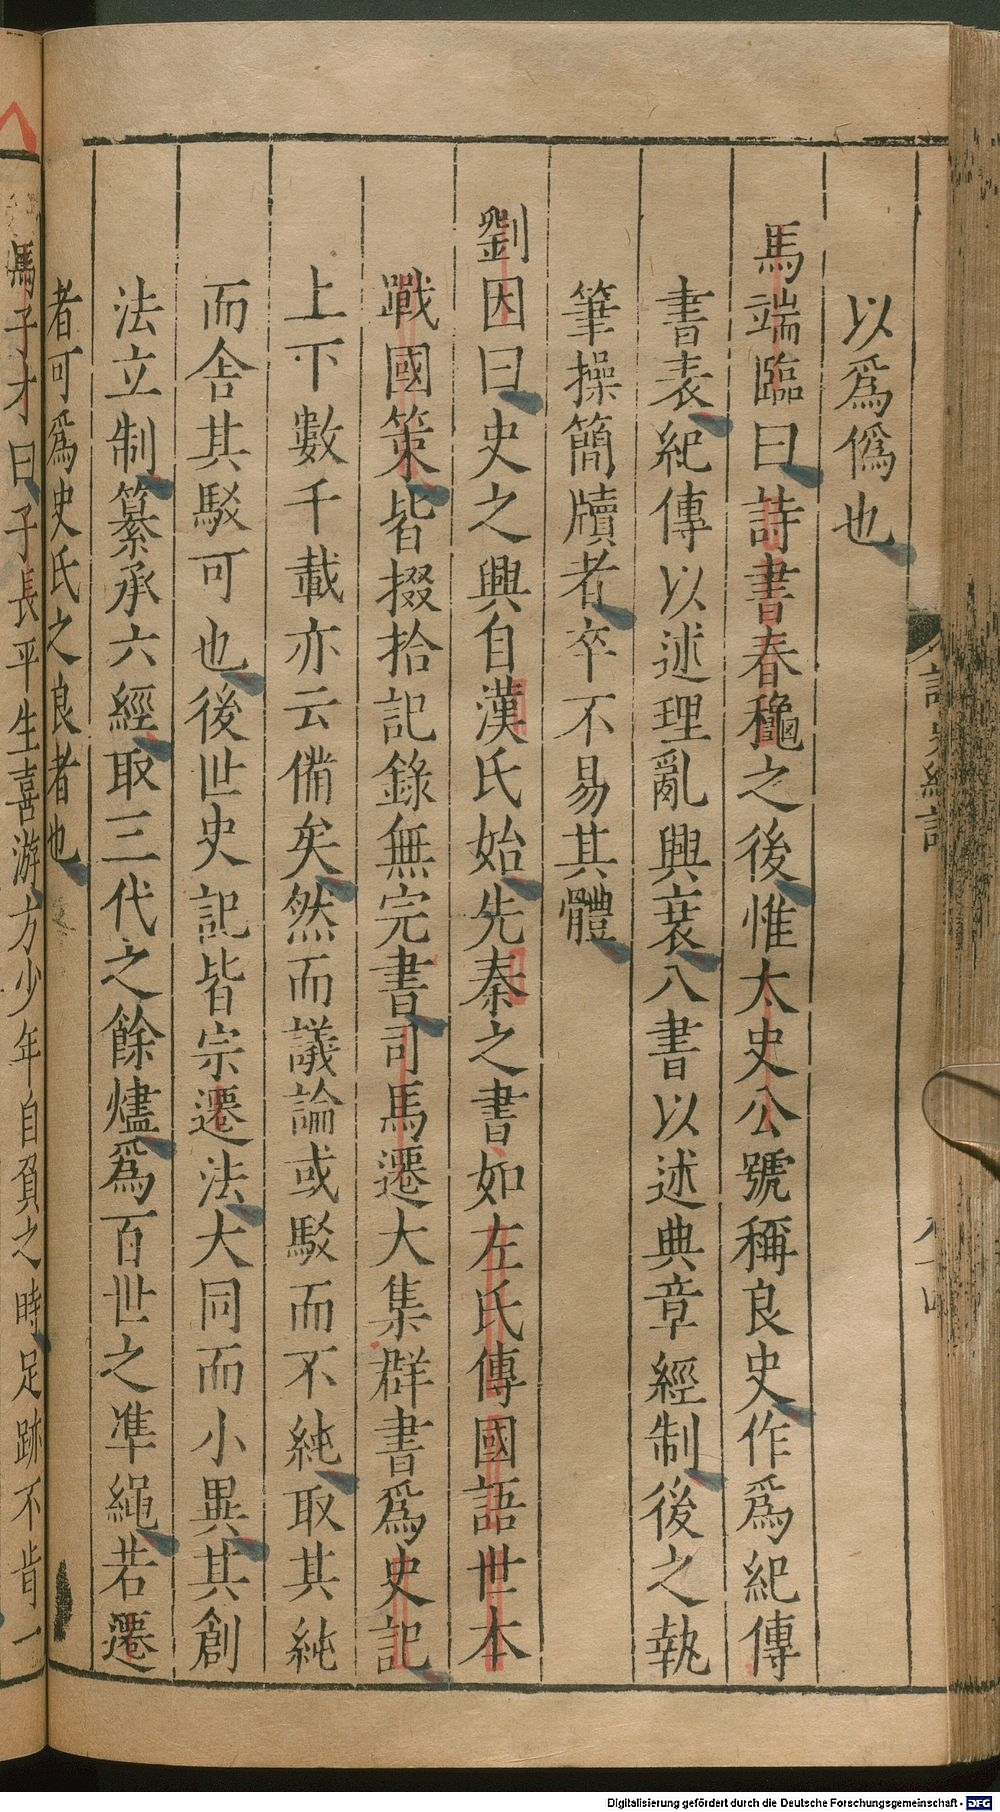 以爲僞也
馬端臨曰詩書春穐之後惟太史公號稱良史作爲紀傳
書表紀傳以述理亂興衰八書以述典章經制後之執
筆操簡牘者卒不易其體
劉因曰史之興自漢氏始先秦之書如左氏傳國語世本
戰國策皆掇拾記錄無完書司馬遷大集群書爲史記
上下數千載亦云備矣然而議論或駁而不純取其純
而舍其駁可也後世史記皆宗遷法大同而小異其創
法立制纂承六經取三代之餘燼爲百世之準繩若遷
者可爲史氏之良者也
馬子才曰子長平生喜游方少年自負之時足跡不肯一
Digitalisierung gefördert durch die Deutsche Forschungsgemeinschaft - DFG